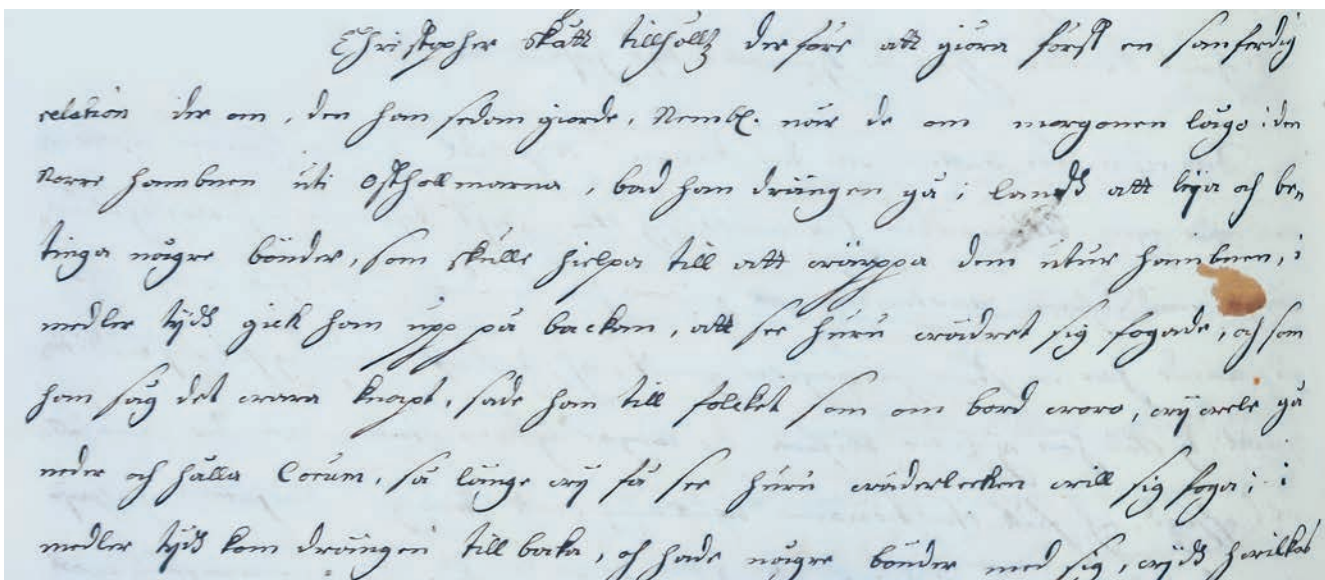 Christopher Skått tillhöltz derföre att giöra först en sanferdig
relation der om, den han sedan giorde, Nembl. när de om morgonen lågo i den
Norre hambnen uti Ostholmarna, bad han drängen gå i landh att leija och be-
tinga någre bönder, som skulle hielpa till att wärppa dem utur hambnen, i
medler tijdh gick han upp på backan, att see huru wädret sig fogade, och som
han såg det wara knapt, sade han till folcket som om bord woro, wij wele gå
neder och hålla Corum, så länge wij få see huru wäderlecken will sig foga; i
medler tijdh kom drängen till baka, och hade någre bönder med sig, wijdh hwilkas